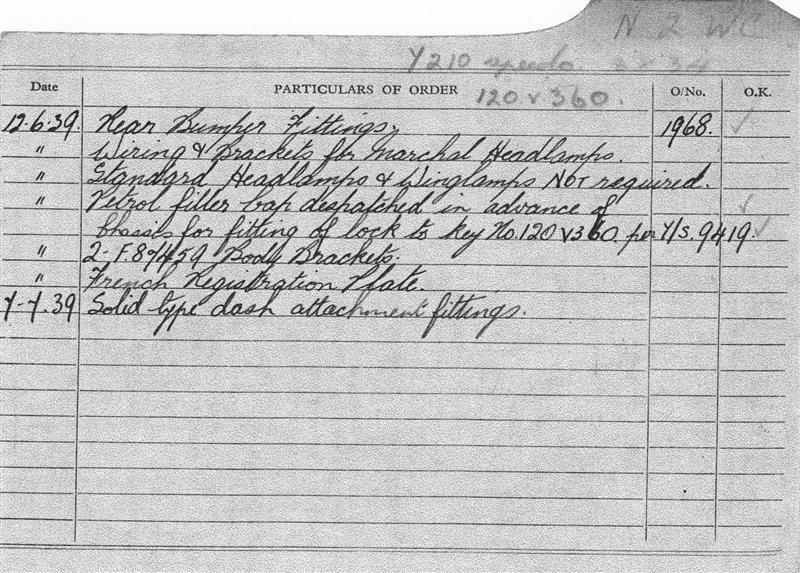 N 2 W C
Y210 speedo.
120 & 360.
Date PARTICULARS OF ORDER O/No. O.K.
12.6.39. Rear Bumper Fittings, 1968. ✓
" Wiring & Brackets for Marchal Headlamps.
" Standard Headlamps & Winglamps NOT required.
" Petrol filler cap despatched in advance of ✓
chassis for fitting of lock to key No. 120 & 360. per Y/S. 9419. ✓
" 2- F.87459 Body Brackets.
" French Registration Plate.
7-7.39 Solid type dash attachment fittings.